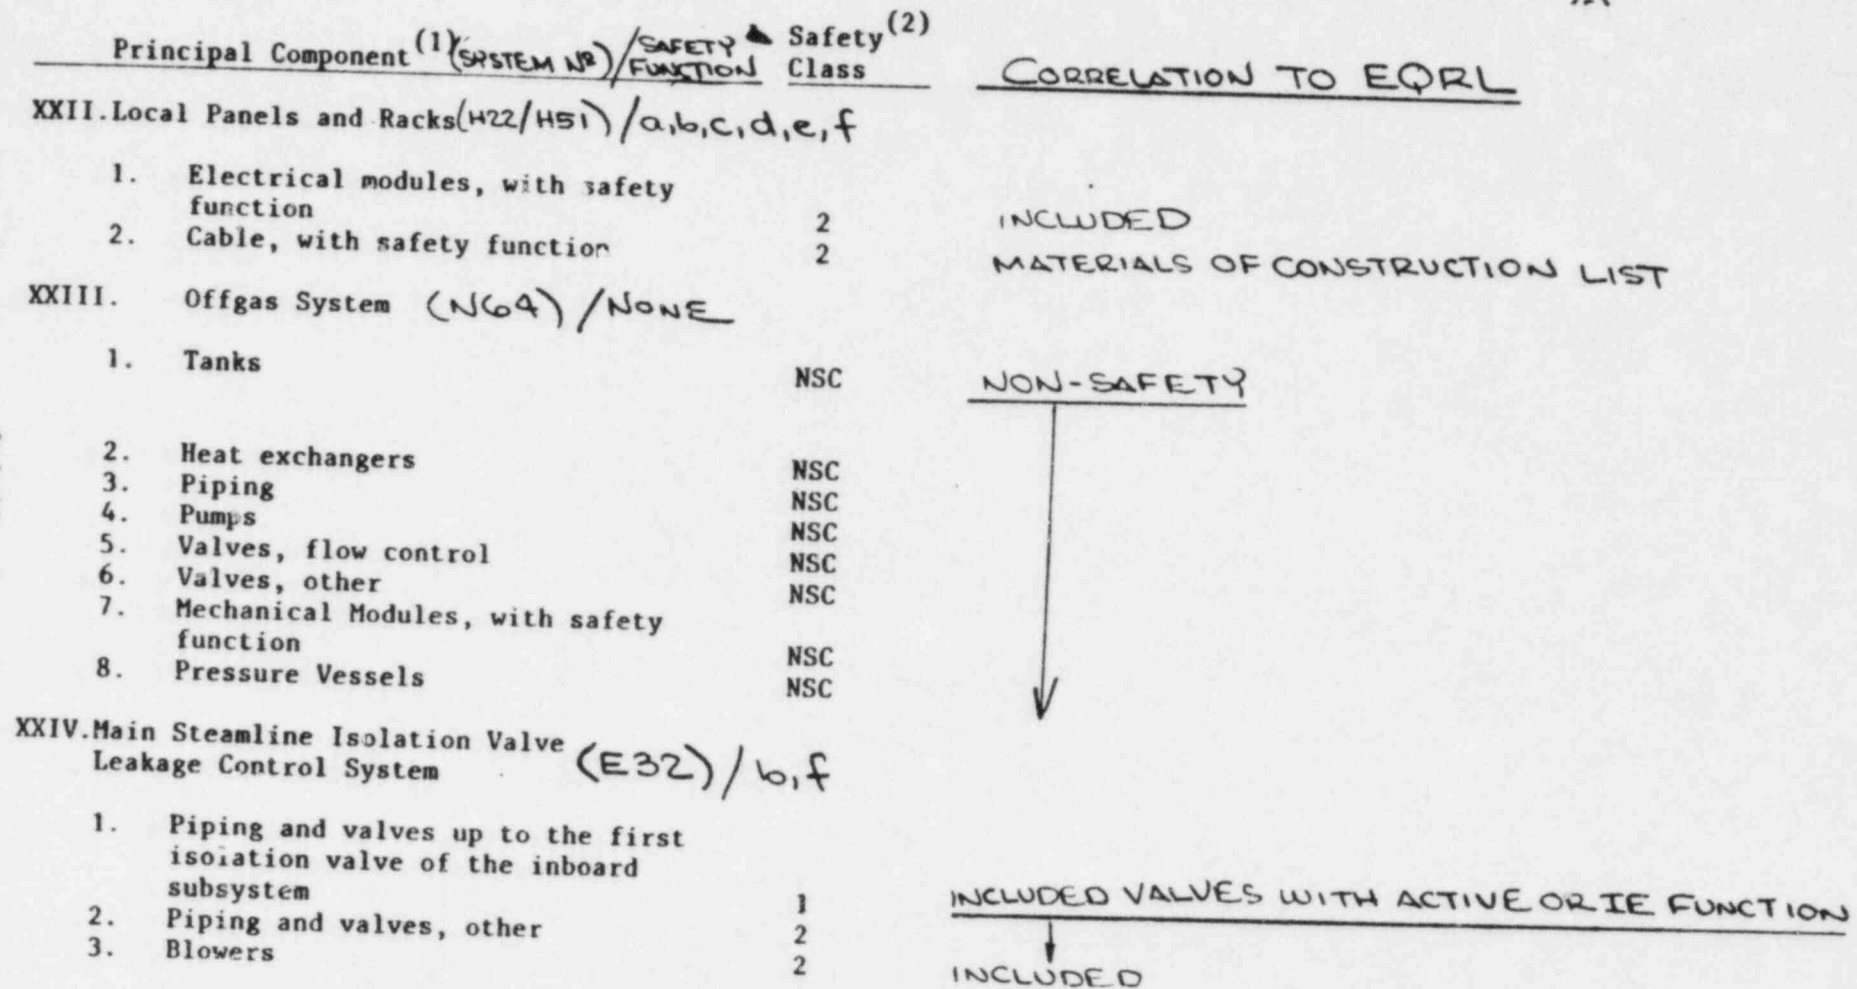 Principal Component (1) (SYSTEM Nº) / SAFETY FUNCTION Safety (2) Class CORRELATION TO EQRL
XXII. Local Panels and Racks (H22/H51) / a, b, c, d, e, f
1. Electrical modules, with safety
function 2 INCLUDED
2. Cable, with safety function 2 MATERIALS OF CONSTRUCTION LIST
XXIII. Offgas System (N64) / NONE
1. Tanks NSC NON-SAFETY
2. Heat exchangers NSC
3. Piping NSC
4. Pumps NSC
5. Valves, flow control NSC
6. Valves, other NSC
7. Mechanical Modules, with safety
function NSC
8. Pressure Vessels NSC
XXIV. Main Steamline Isolation Valve
Leakage Control System (E32) / b, f
1. Piping and valves up to the first
isolation valve of the inboard
subsystem 1 INCLUDED VALVES WITH ACTIVE OR IE FUNCTION
2. Piping and valves, other 2
3. Blowers 2 INCLUDED